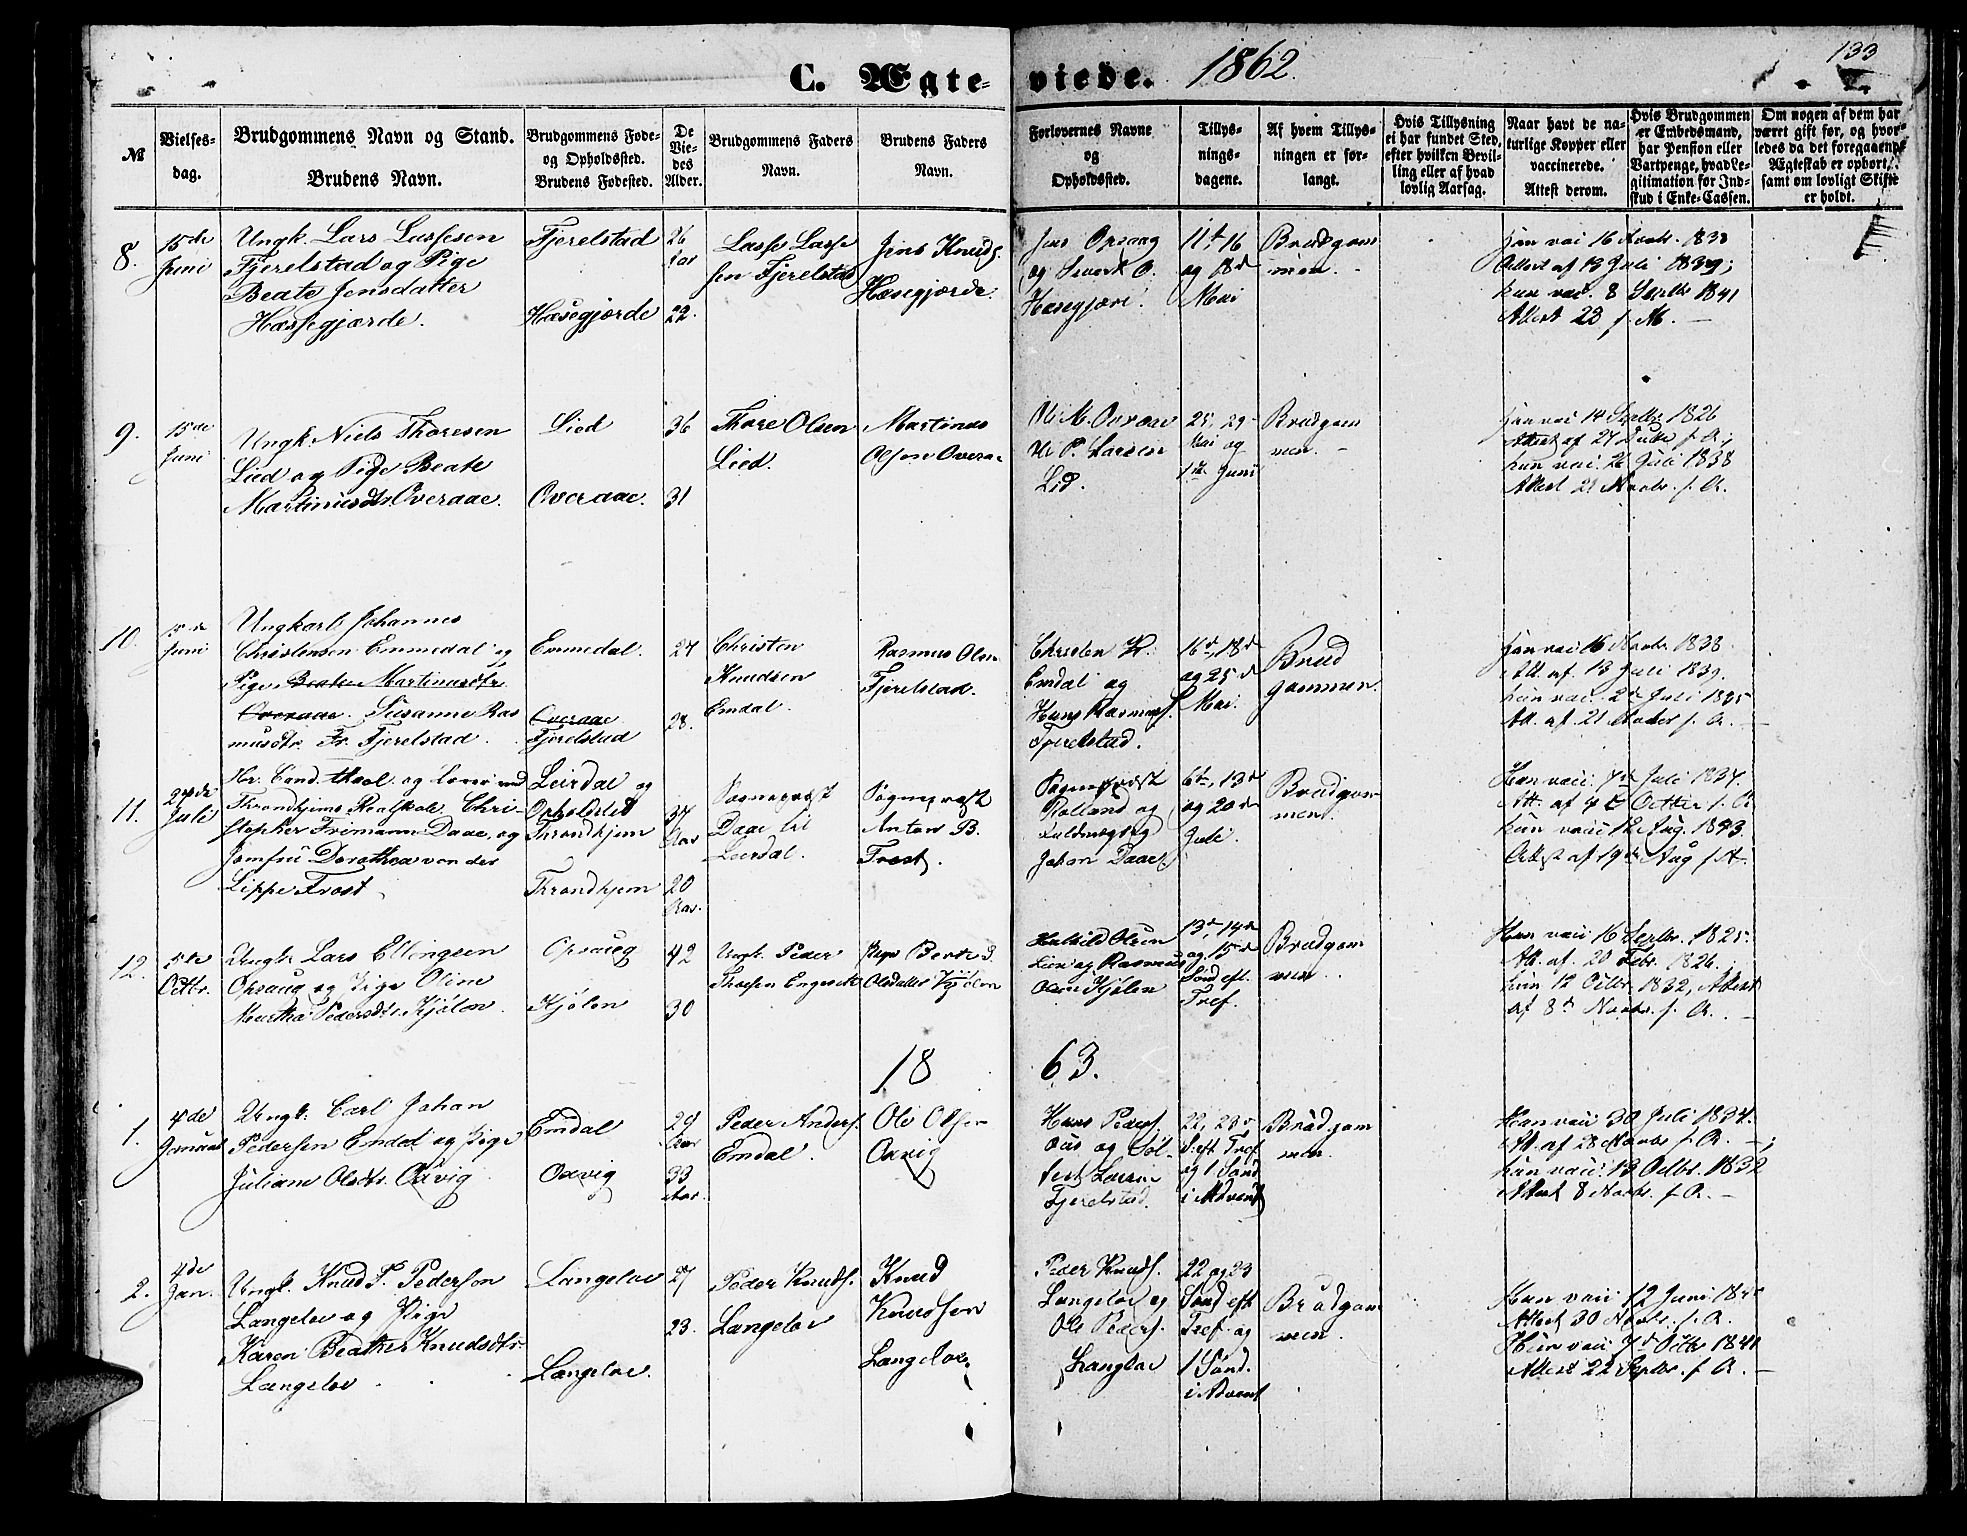 C. Ægte- viede. 1862. 133
№
Vielses-
dag.
Brudgommens Navn og Stand.
Brudens Navn.
Brudgommens Føde-
og Opholdssted.
Brudens Fødested.
De
Vie-
des
Alder.
Brudgommens Faders
Navn.
Brudens Faders
Navn.
Forlovernes Navne
og
Opholdssted.
Tillys-
nings-
dagene.
Af hvem Tillys-
ningen er for-
langt.
Hvis Tillysning
ei har fundet Sted,
efter hvilken Bevil-
ling eller af hvad
lovlig Aarsag.
Naar havt de na-
turlige Kopper eller
vaccinerede.
Attest derom.
Hvis Brudgommen
er Embedsmand,
har Pension eller
Vartpenge, hvad Le-
gitimation for Ind-
skud i Enke-Cassen.
Om nogen af dem har
været gift før, og hvor-
ledes da det foregaaende
Ægteskab er ophørt,
samt om lovligt Skifte
er holdt.
8.
15de
Juni
Ungk. Lars Lassesen
Fjerelstad og Pige
Beate Jensdatter
Hassegjærde.
Fjerelstad
Hasegjærde
26
Aar
22.
Lasse Lasse
sen Fjerelstad
Jens Knuds.
Hasegjærde.
Jens Opsaug
og Sivert O.
Hasegjære.
11t 16
og 18d
Mai
Brudgom
men.
han vai 16 Novbr. 1838
Attest af 13 Juli 1839;
hun vac. 8 Septbr 1841
Attest 28 s. M. —
9.
15de
Juni
Ungk. Niels Thoresen
Lied og Pige Beate
Martinusdtr Overaae.
Lied
Overaae.
36
31
Thore Olsen
Lied.
Martinus
Olsen Overaae
Ole M. Overaae
P. Larsen
Lid.
25, 29
Mai og
1ste Juni
Brudgom
men.
han vai 14 Septbr 1826
Attest af 27 s. A;
hun vai. 26 Juli 1838
Attest 21 Novbr. s. A.
10.
15de
Juni
Ungkarl Johannes
Christensen Emmedal og
Pige Beate Martinusdtr
Overaae. Susanne Ras
musdtr. Fr. Fjerelstad.
Emmedal.
Overaae
Fjerelstad
27
28.
Christen
Knudsen
Emdal.
Rasmus Olsen
Fjerelstad.
Christen K.
Emdal og
Hans Rasmuss.
Fjerelstad.
16d, 18d
og 25d
Mai.
Brud
gommen.
han vai 16 Novbr 1838.
Att. af. 13 Juli 1839.
hun vai. 2d Juli 1835
Att. af. 21 Novber s. A. —
11.
27de
Juli
Hr. Cand. theol. og Lærer ved
Throndhjems Realskole. Chri-
stopher Frimann Daae, og
Jomfru Dorothea von der
Lippe Frost
Leirdal og
Opholdsted
Throndhjem
Throndhjem
37
Aar
20
Aar.
Sogneprest
Daae til
Leirdal.
Sogneprest
Anton B.
Frost.
Sogneprest
Rolland og
Johan Daae
6te, 13d
og 20de
Juli.
Brudgom
men.
Han vaii 7de Juli 1827.
Att. af 4t Octbr s. A
hun vaii 12 Aug. 1843.
Attest af 19de Aug s. A.
12.
5te
Octbr.
Ungk Lars Ellingsen
Opsaug og Pige Oline
Martha Pedersdtr Kjølen.
Opsaug
Kjølen
42
30
Ungk Peder
Engeset
Pige Berte
Olsdatter Kjølen
Olsen
Lien og Rasmus
Olsen Kjølen
13d, 14d
og 15de
Sønd eft.
Tref.
Brudgom
men.
Han vaii 16 Septbr. 1825.
Att. af. 20 Febr. 1826.
hun 12 Octbr. 1832, Attest
af 8d Novbr. s. A. —
18 63.
1.
4de
Januar
Ungk. Carl Johan
Pedersen Emdal og Pige
Juliane Olsdtr. Oxvig
Emdal
Oxvig
29
Aar
33
Aar.
Peder Anders.
Emdal.
Ole Olsen
Oxvig
Hans Peders.
Ous og Sol-
fest Larsen
Fjerelstad.
22, 23d
S. eft Tref.
og 1 Sønd.
i Advent
Brudgom
men.
Han vaii 30 Juli 1834.
Att. af 28 Novbr s. A. —;
hun vaii 12 Octbr. 1832
Attest 8 Novbr. s. A. —
2.
4de
Jan.
Ungk. Knud P. Pedersen
Langeloe og Pige
Karen Beathe Knudsdtr.
Langeloe
Langeloe
Langeloe.
27
23.
Peder Knuds.
Langeloe
Knud
Knudsen
Langeloe.
Peder Knuds.
Langeloe og
Ole Peders.
Langloe
22 og 23
Sønd eft
Tref og
1 Sønd.
i Advent
Brudgom
men.
Han vaii 12 Juni
Attest 30 Novbr. s. A.
Hun vaii 7d Octbr 1841
Attest 22 Septbr. s. A. —